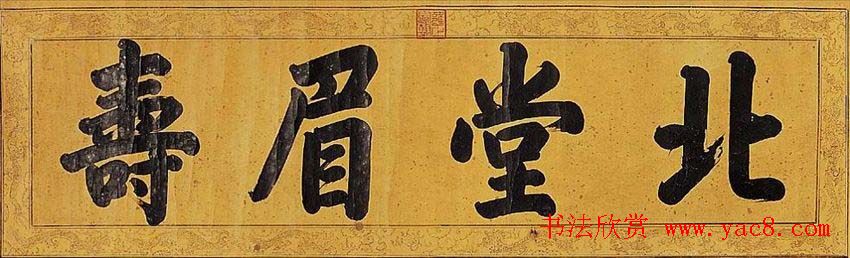 北堂眉壽
书法欣赏
www.yac8.com